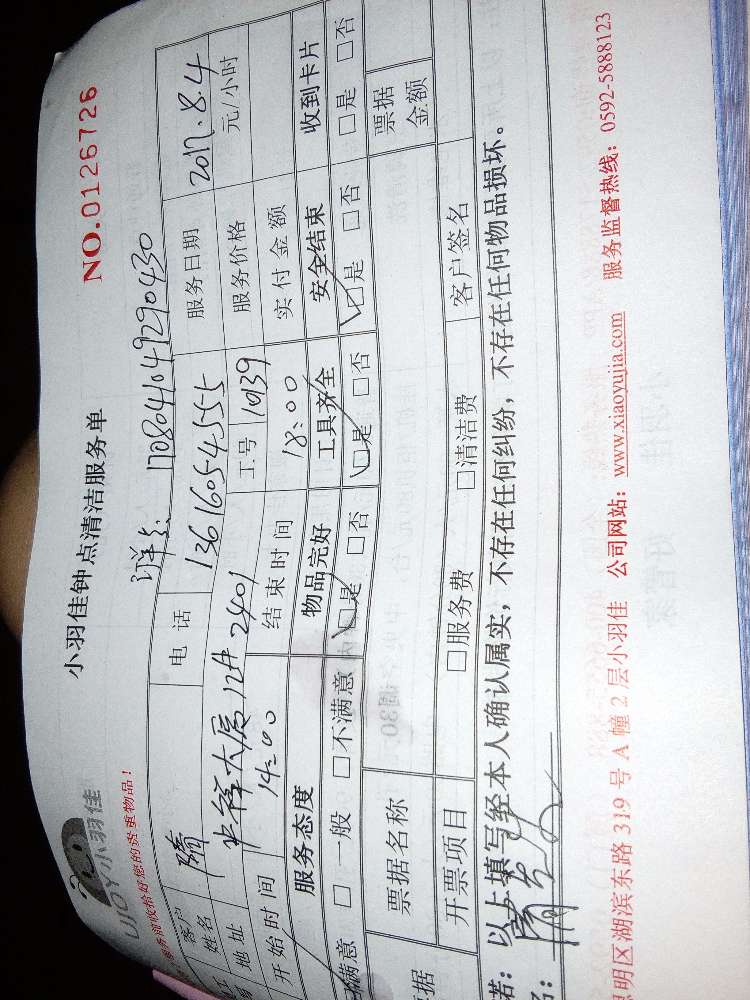 UJOY小羽佳
小羽佳钟点清洁服务单
NO.0126726
服务前收拾好您的贵重物品！
1708041049290430
客户姓名 隋 电话 13616054555 服务日期 2017.8.4
地址 大厦12# 2401 工号 10139 服务价格 元/小时
开始时间 14:00 结束时间 18:00 实付金额
服务态度 物品完好 工具齐全 安全结束 收到卡片
满意 □一般 □不满意 □是 □否 □是 □否 □是 □否 □是 □否
票据名称 票据金额
据 开票项目 □服务费 □清洁费 客户签名
诺：以上填写经本人确认属实，不存在任何纠纷，不存在任何物品损坏。
明区湖滨东路319号A幢2层小羽佳 公司网站：www.xiaoyujia.com 服务监督热线：0592-5888123